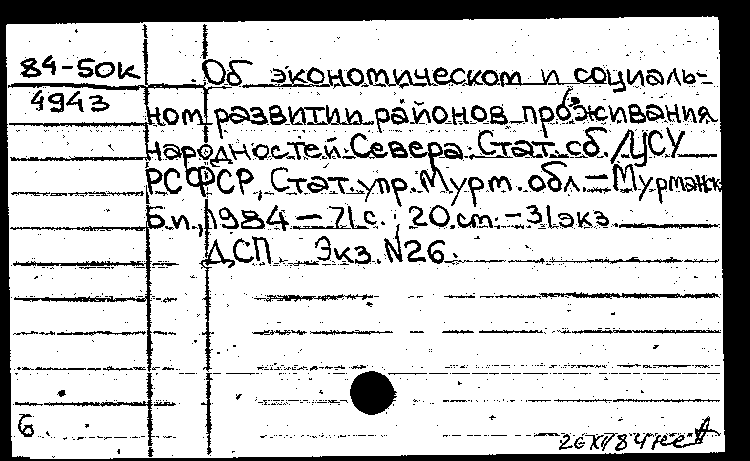 84-50к
4943
Об экономическом и социаль-
ном развитии районов проживания
народностей Севера: Стат. сб. /ЦСУ
РСФСР, Стат. упр. Мурм. обл. - Мурманск
Б.и., 1984 - 71 с.; 20 см. - 31 экз
ДСП Экз. N26.
6